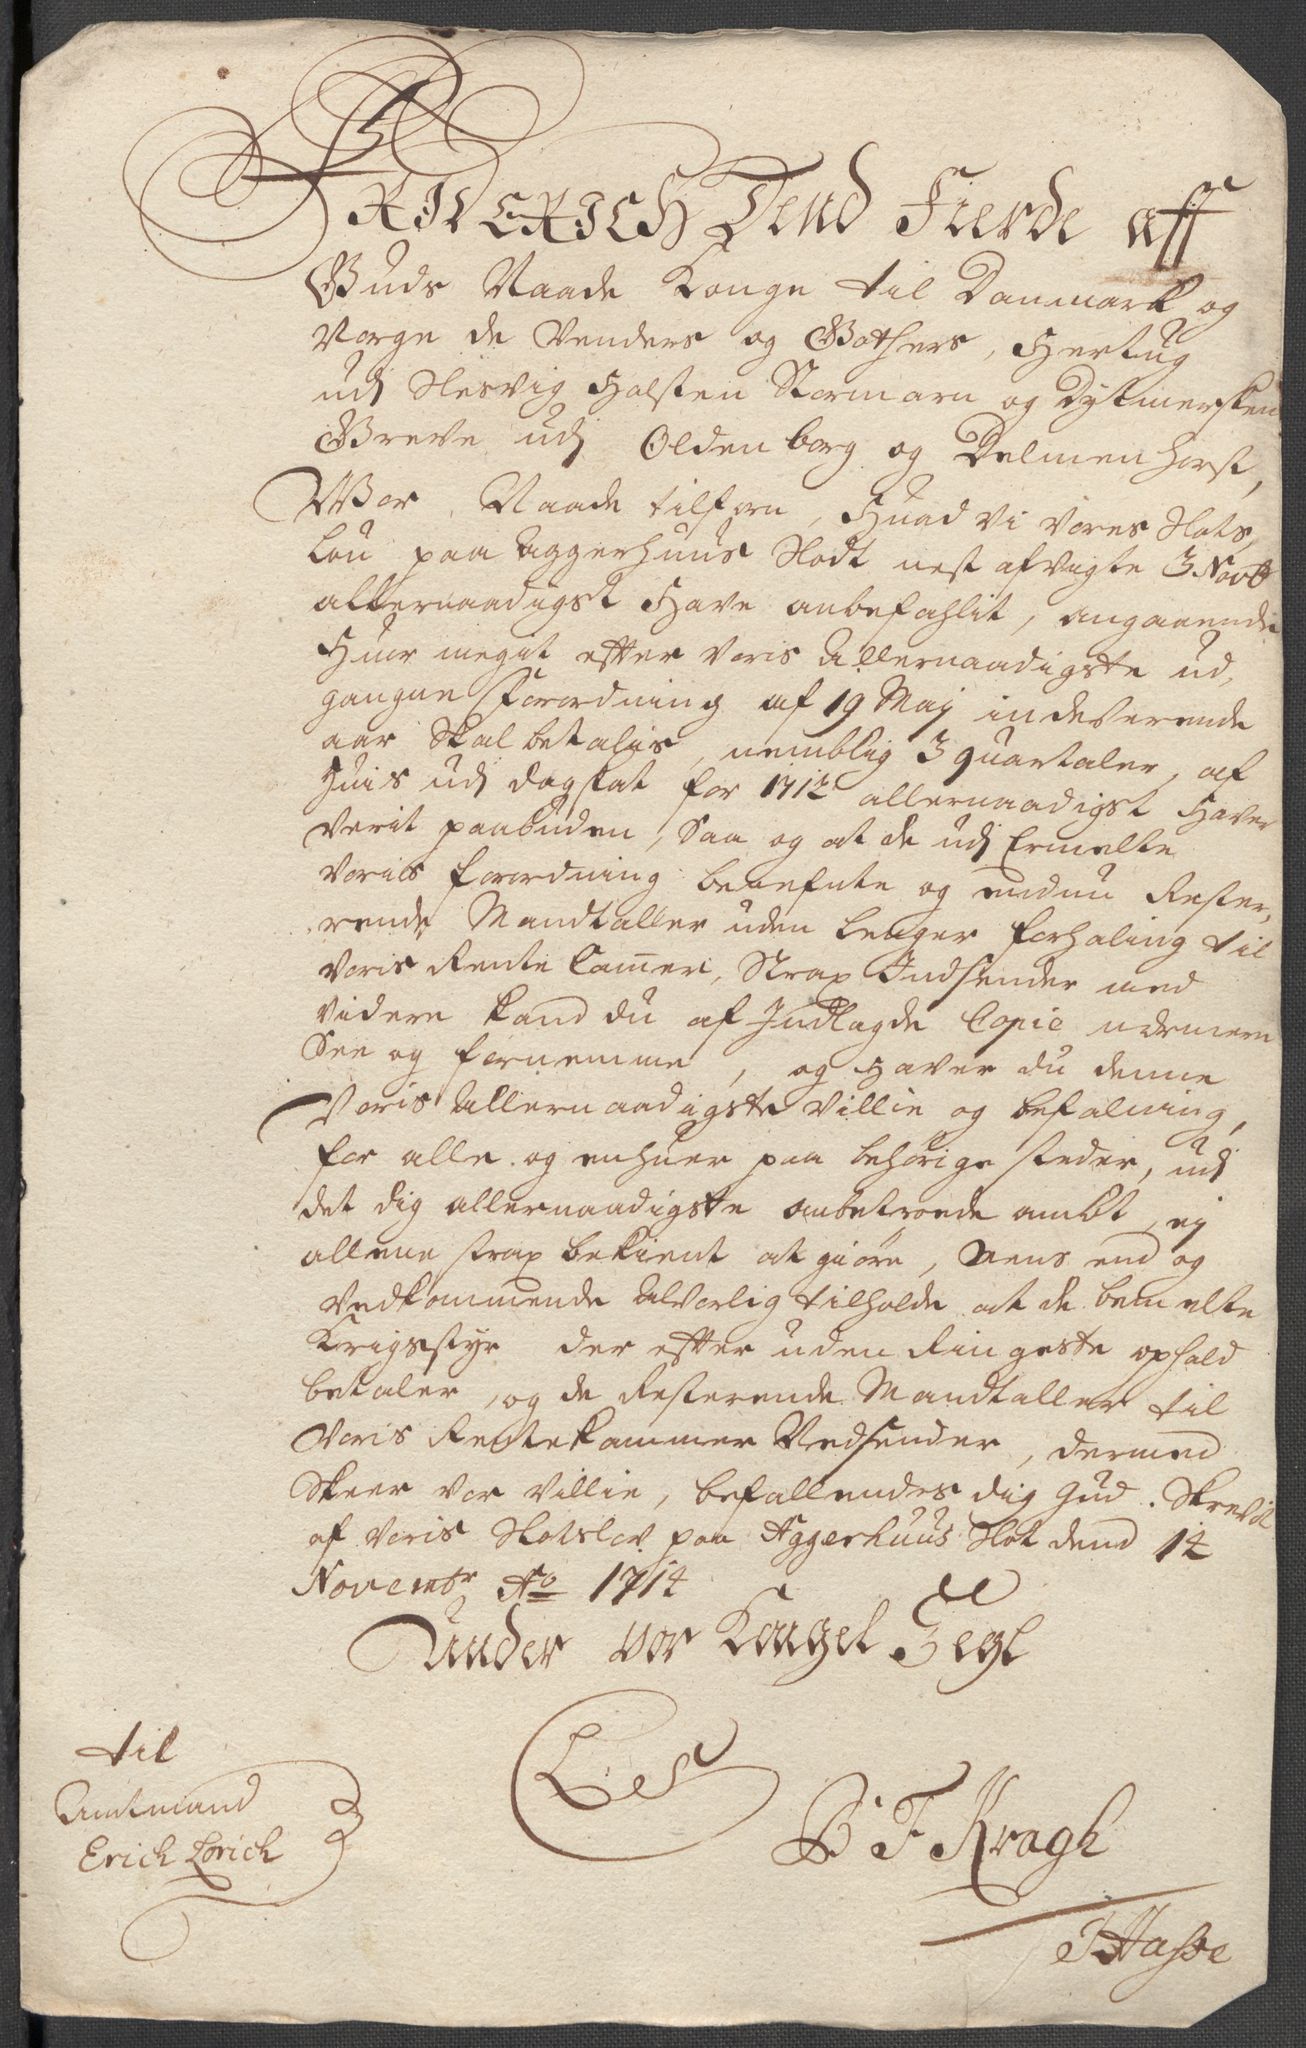 FRIDERICH Dend Fierde aff
Guds Naade Konge til Danmark og
Norge de Venders og Gothers, Hertug
udj Slesvig Holsten Stormarn og Dytmersken
Greve udj Oldenborg og Delmenhorst,
Wor Naade tilforn, Huad Vi Vores Slots,
Lou paa Aggerhuus Slodt nest afvigte 3 Novbr
allernaadigst Have anbefahlit, angaaende
Huor megit efter Voris Allernaadigste ud,
gangne Forordning af 19 Maj indeverende
aar Skal betalis, nemblig 3 quartaler, af
huis udj dagskat for 1712 allernaadigst Haver
Verit paabuden, Saa og at de udj Ermelte
Voris forordning benefnte og endnu Rester,
rende Mandtaller uden lenger forhaling til
Voris Rente Cammer, Strax Indsender med
Videre kand du af Indlagde Copie nærmere
See og fornemme, og Haver du denne
Voris Allernaadigste Villie og befalning,
for alle og enhuer paa behørige steder, udj
det dig allernaadigste anbetroede ambt, ej
allene strax bekient at giøre, Mens end og
Vedkommende Alvorlig tilholde at de bemelte
Krigsstyr der efter uden Ringeste ophold
betaler, og de Resterende Mandtaller til
Voris Rentekammer Nedsender, dermed
Skeer vor Villie, befallendes dig Gud. Skrevit
af Voris Slotslov paa Aggerhuus Slot dend 14
Novembr Ao 1714
Under vor Kongel Zegl
L S
til
Amtmand
Erich Lorich
B F Kragh
T Hasse